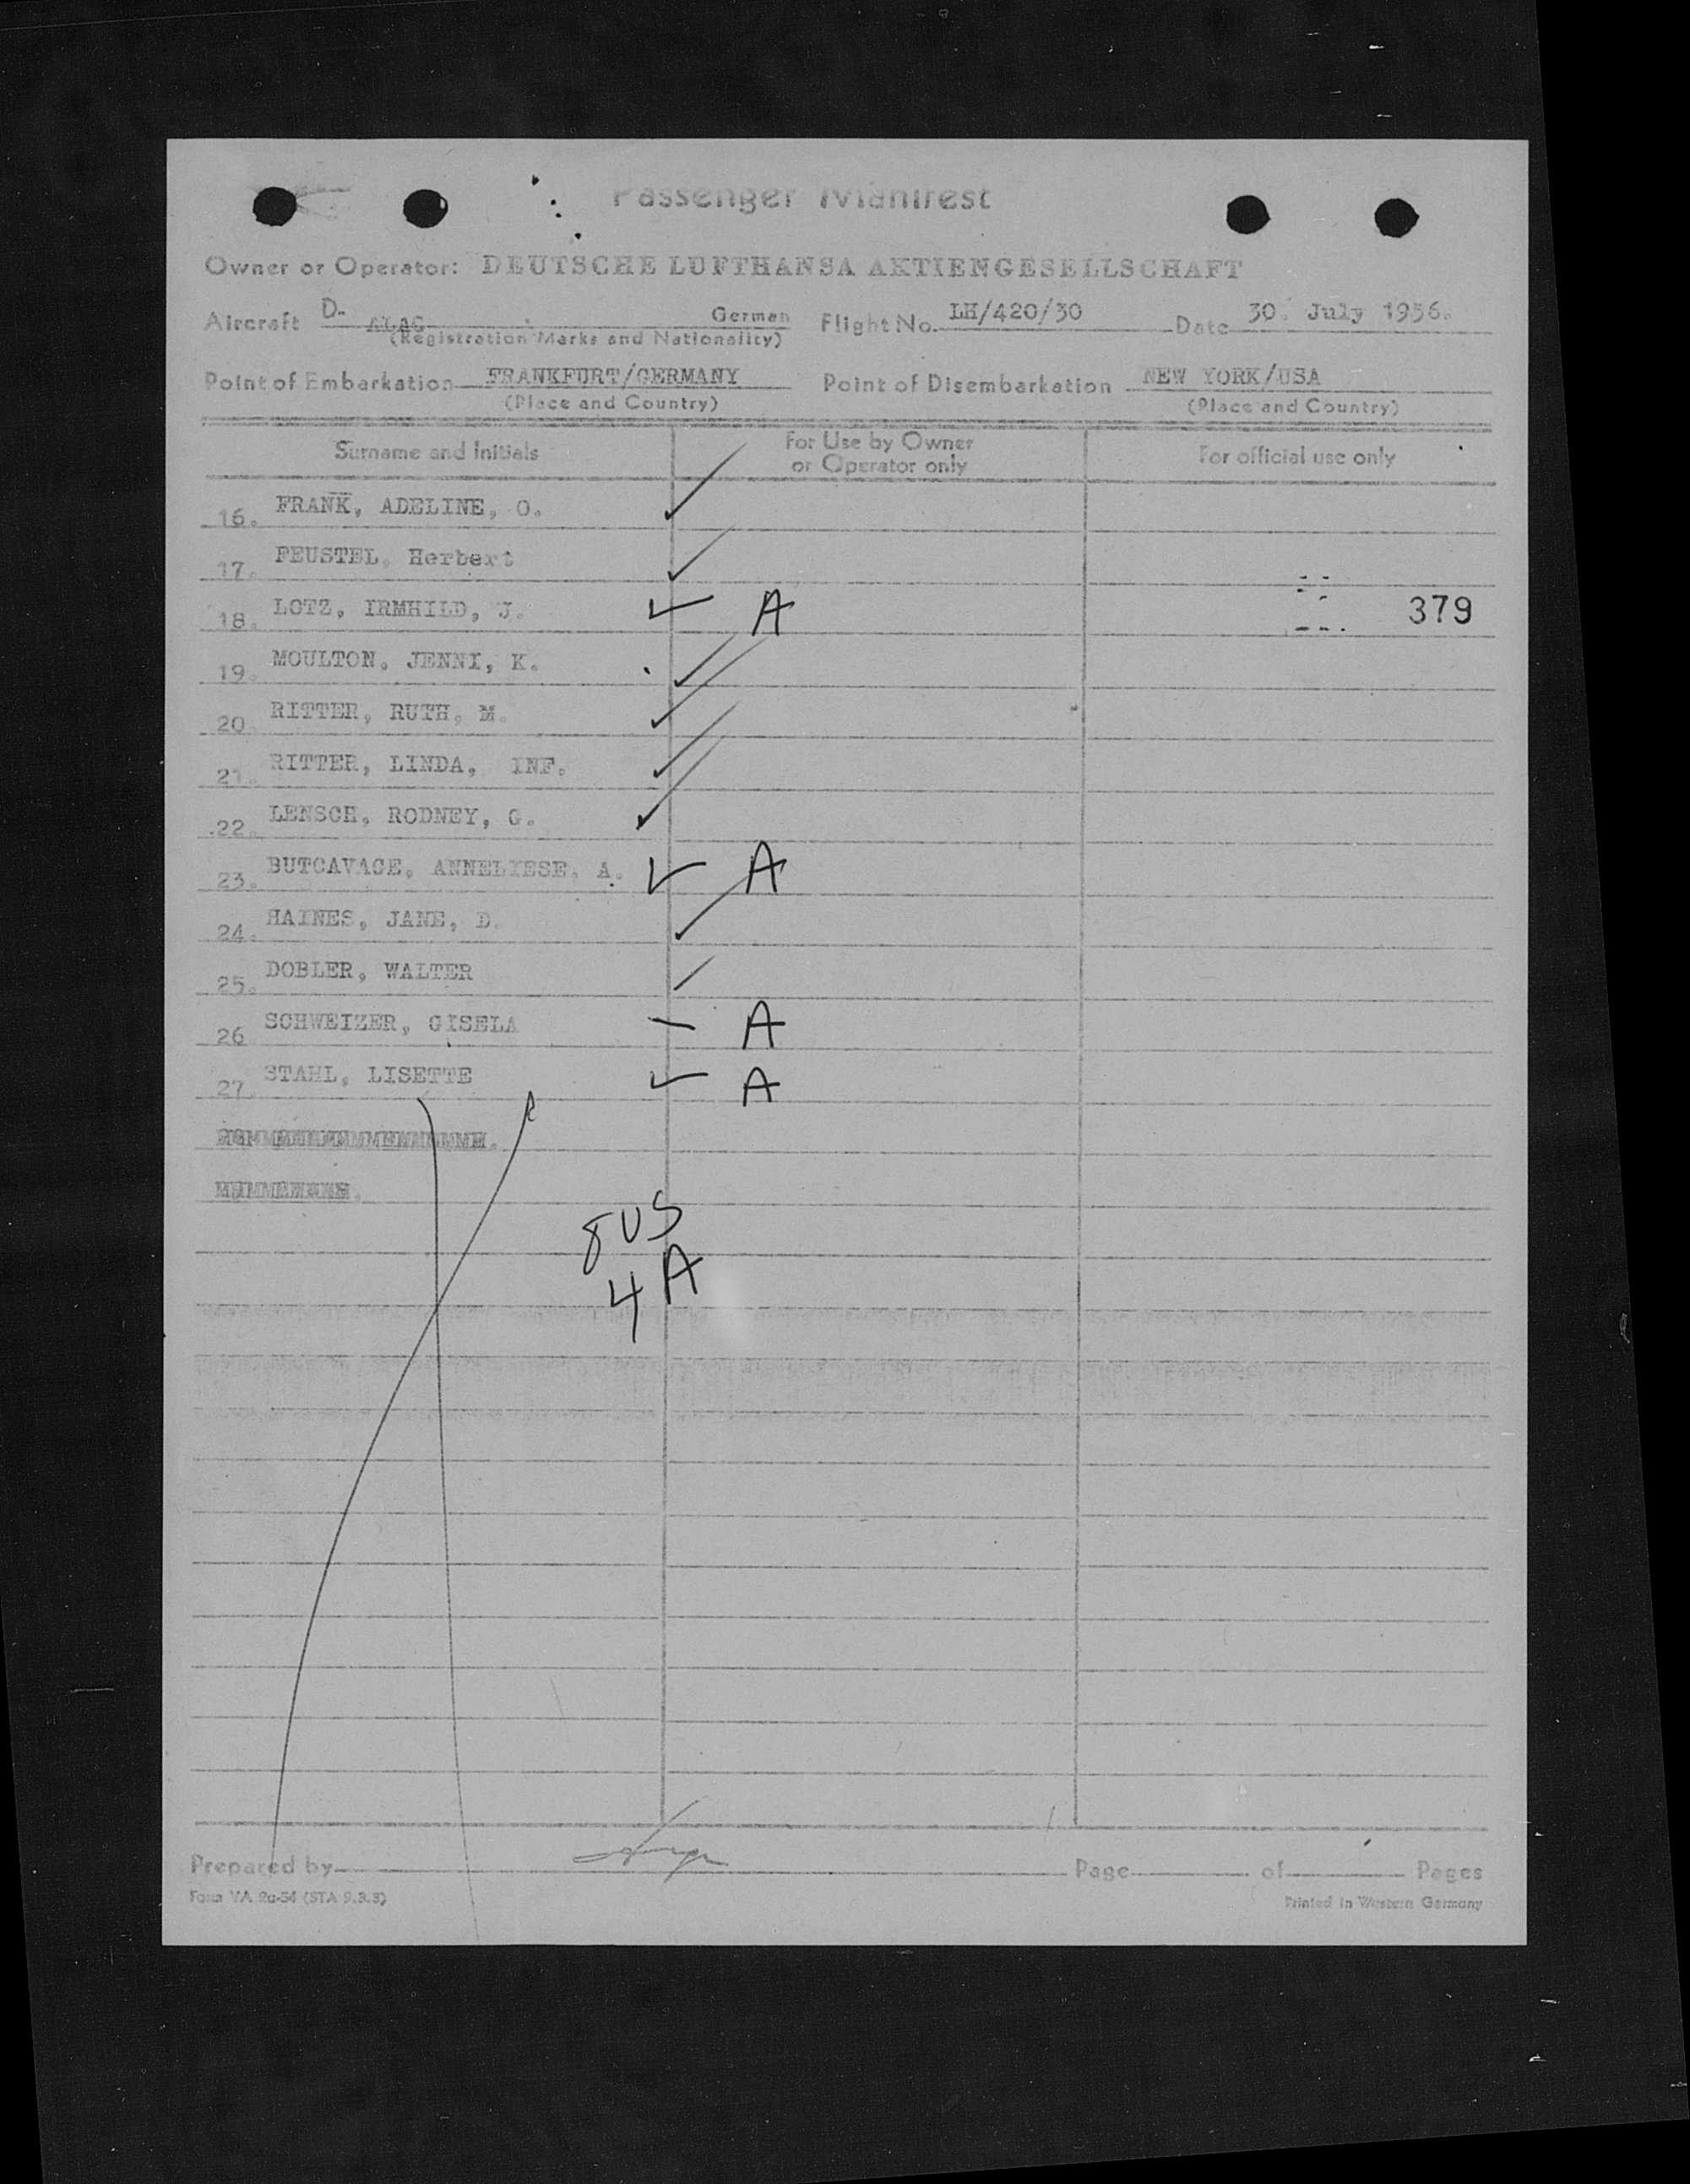 Passenger Manifest
Owner or Operator: DEUTSCHE LUFTHANSA AKTIENGESELLSCHAFT
Aircraft D- German Flight No. LH/420/30 Date 30. July 1956.
(Registration Marks and Nationality)
Point of Embarkation FRANKFURT/GERMANY Point of Disembarkation NEW YORK/USA
(Place and Country) (Place and Country)
Surname and Initials For Use by Owner or Operator only For official use only
16. FRANK, ADELINE, O.
17. FEUSTEL, Herbert
18. LOTZ, IRMHILD, J. A 379
19. MOULTON, JENNI, K.
20. RITTER, RUTH, M.
21. RITTER, LINDA, INF.
22. LENSCH, RODNEY, G.
23. BUTCAVAGE, ANNELIESE, A. A
24. HAINES, JANE, D.
25. DOBLER, WALTER
26 SCHWEIZER, GISELA A
27. STAHL, LISETTE A
8 US
4 A
Prepared by Page of Pages
Form VA 2a-54 (STA 9.3.3) Printed in Western Germany